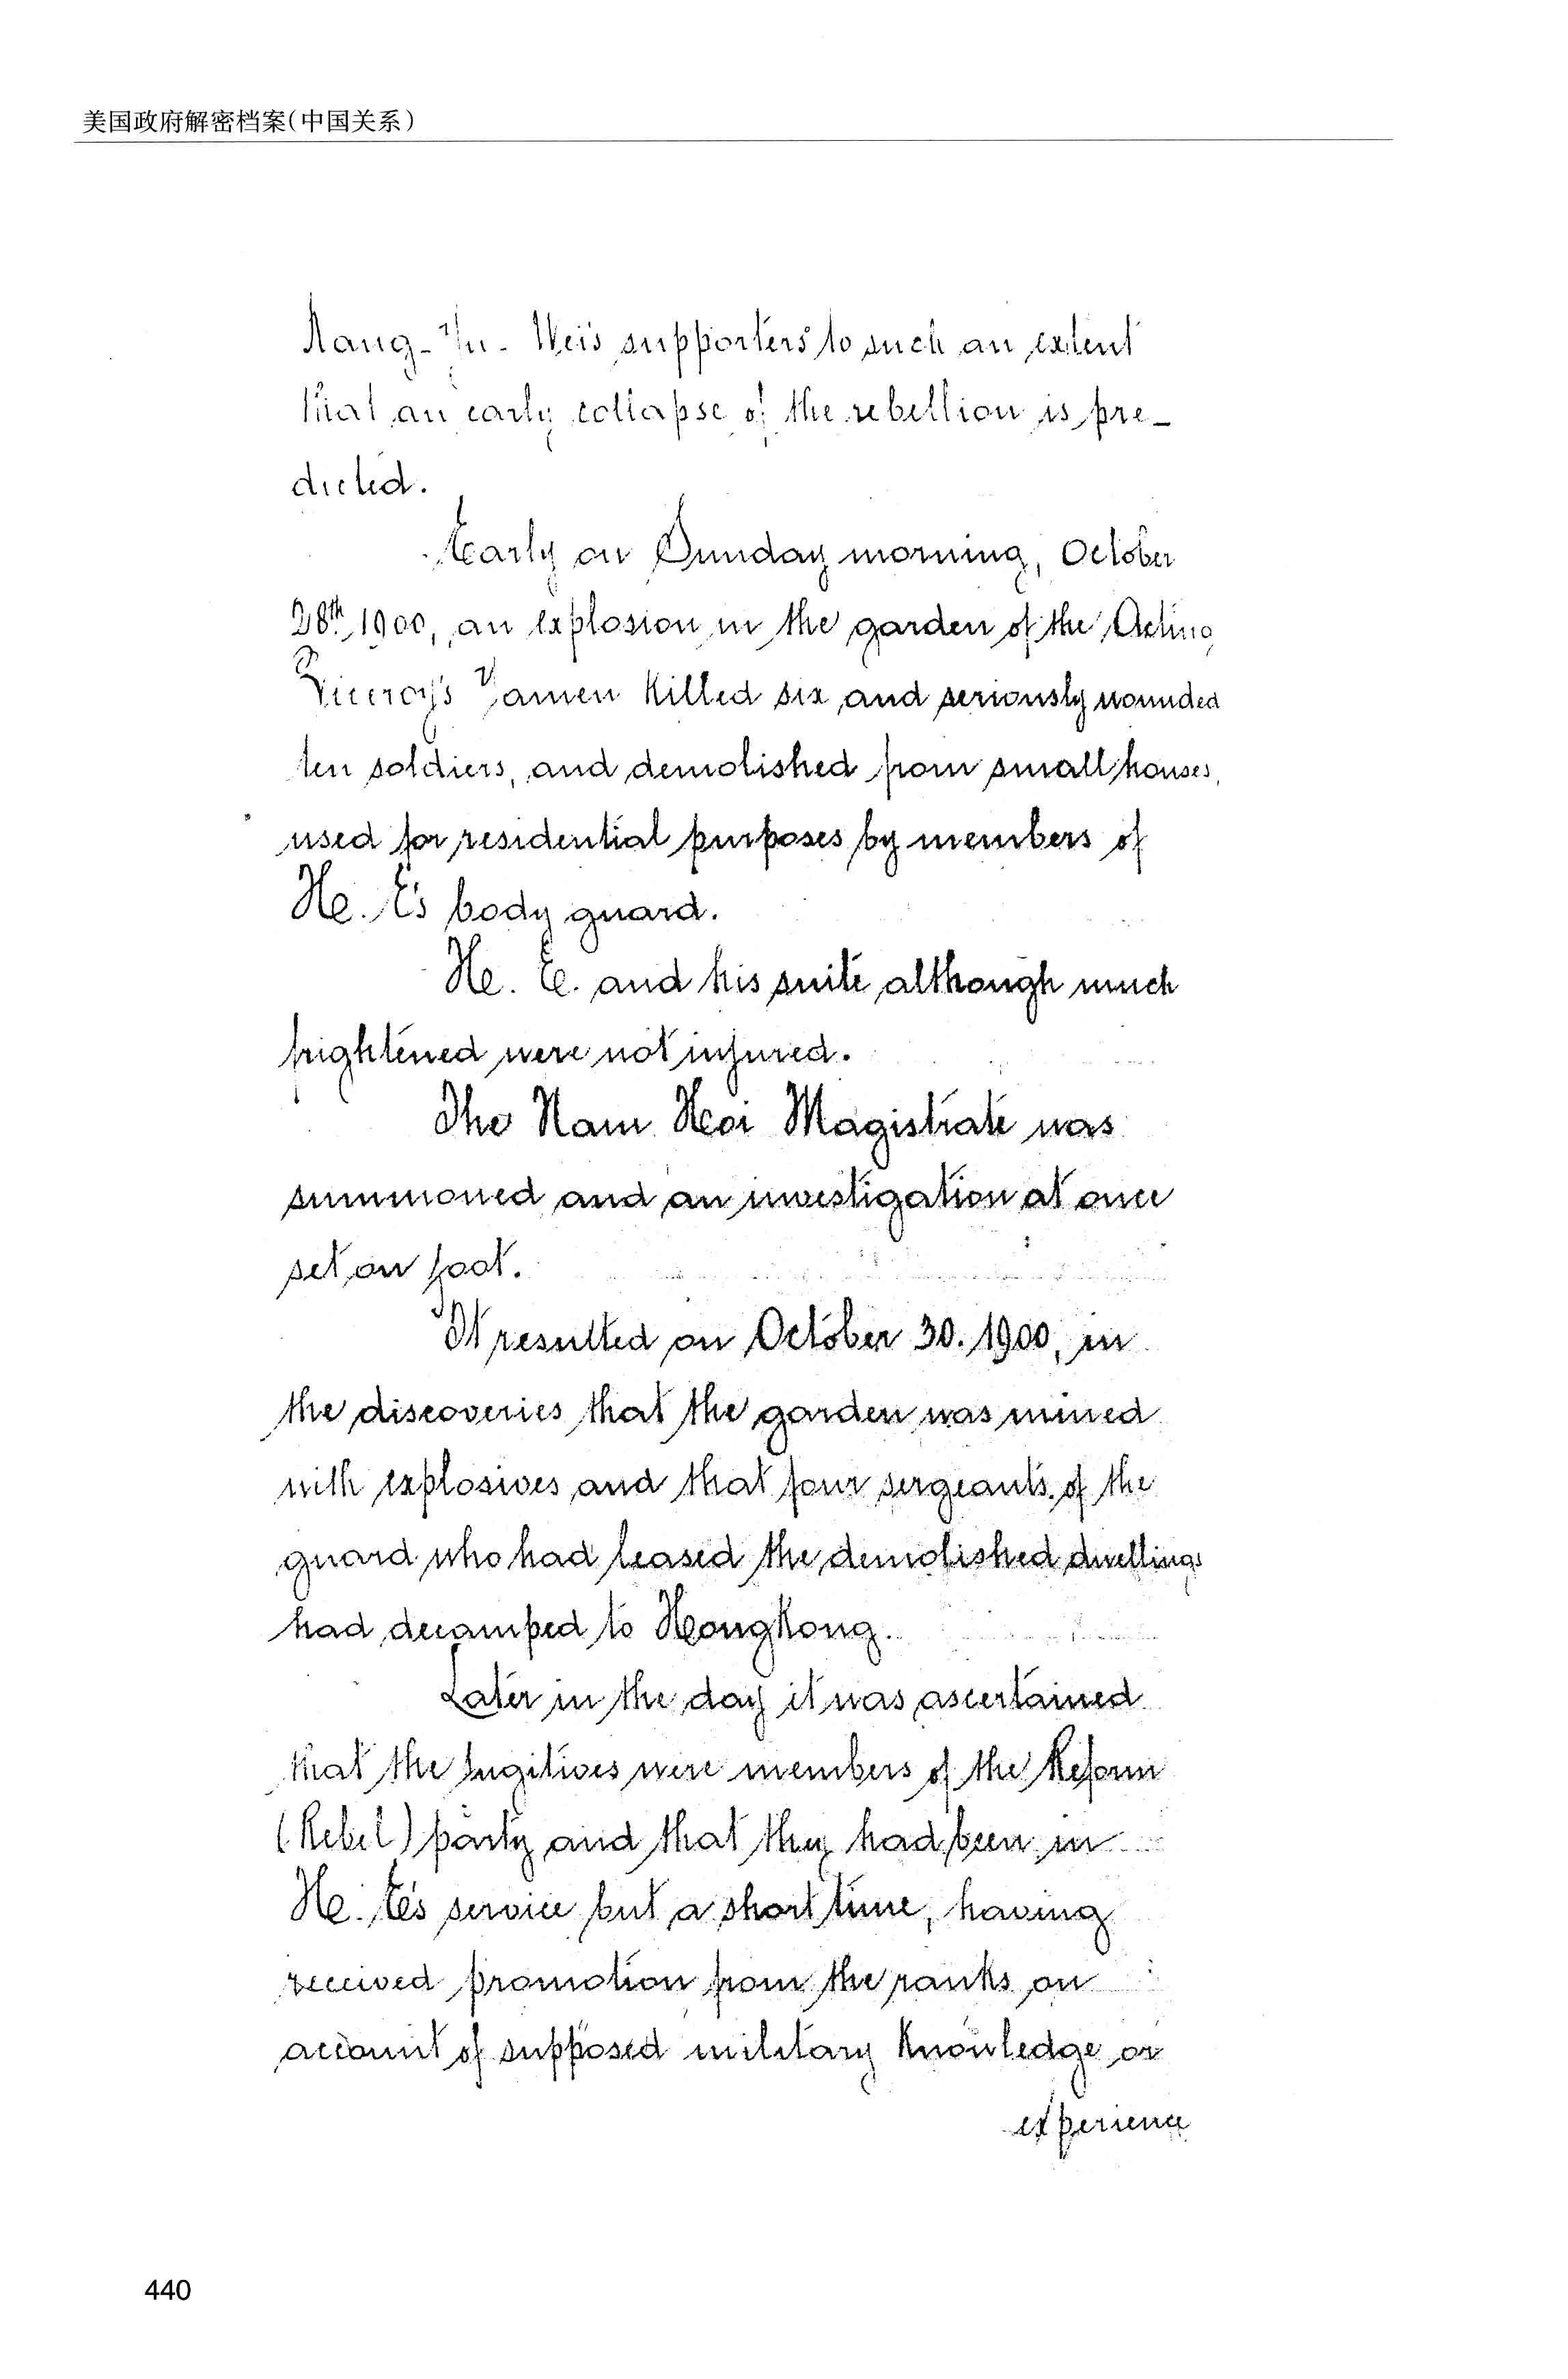 美国政府解密档案(中国关系)
Kang-Yu-Wei's supporters to such an extent
that an early collapse of the rebellion is pre-
dicted.
Early on Sunday morning, October
28th, 1900, an explosion in the garden of the Acting
Viceroy's Yamen killed six and seriously wounded
ten soldiers, and demolished from small houses,
used for residential purposes by members of
H. E's body guard.
H. E. and his suite although much
frightened were not injured.
The Nam Hoi Magistrate was
summoned and an investigation at once
set on foot.
It resulted on October 30. 1900, in
the discoveries that the garden was mined
with explosives and that four sergeants of the
guard who had leased the demolished dwellings
had decamped to Hongkong.
Later in the day it was ascertained
that the fugitives were members of the Reform
(Rebel) party and that they had been in
H. E's service but a short time, having
received promotion from the ranks on
account of supposed military knowledge or
experience
440